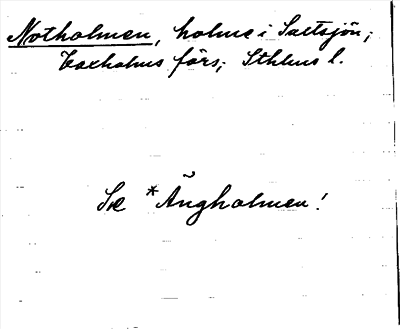 Notholmen, holme i Saltsjön;
Vaxholms förs; Sthlms l.
Se *Ängholmen!